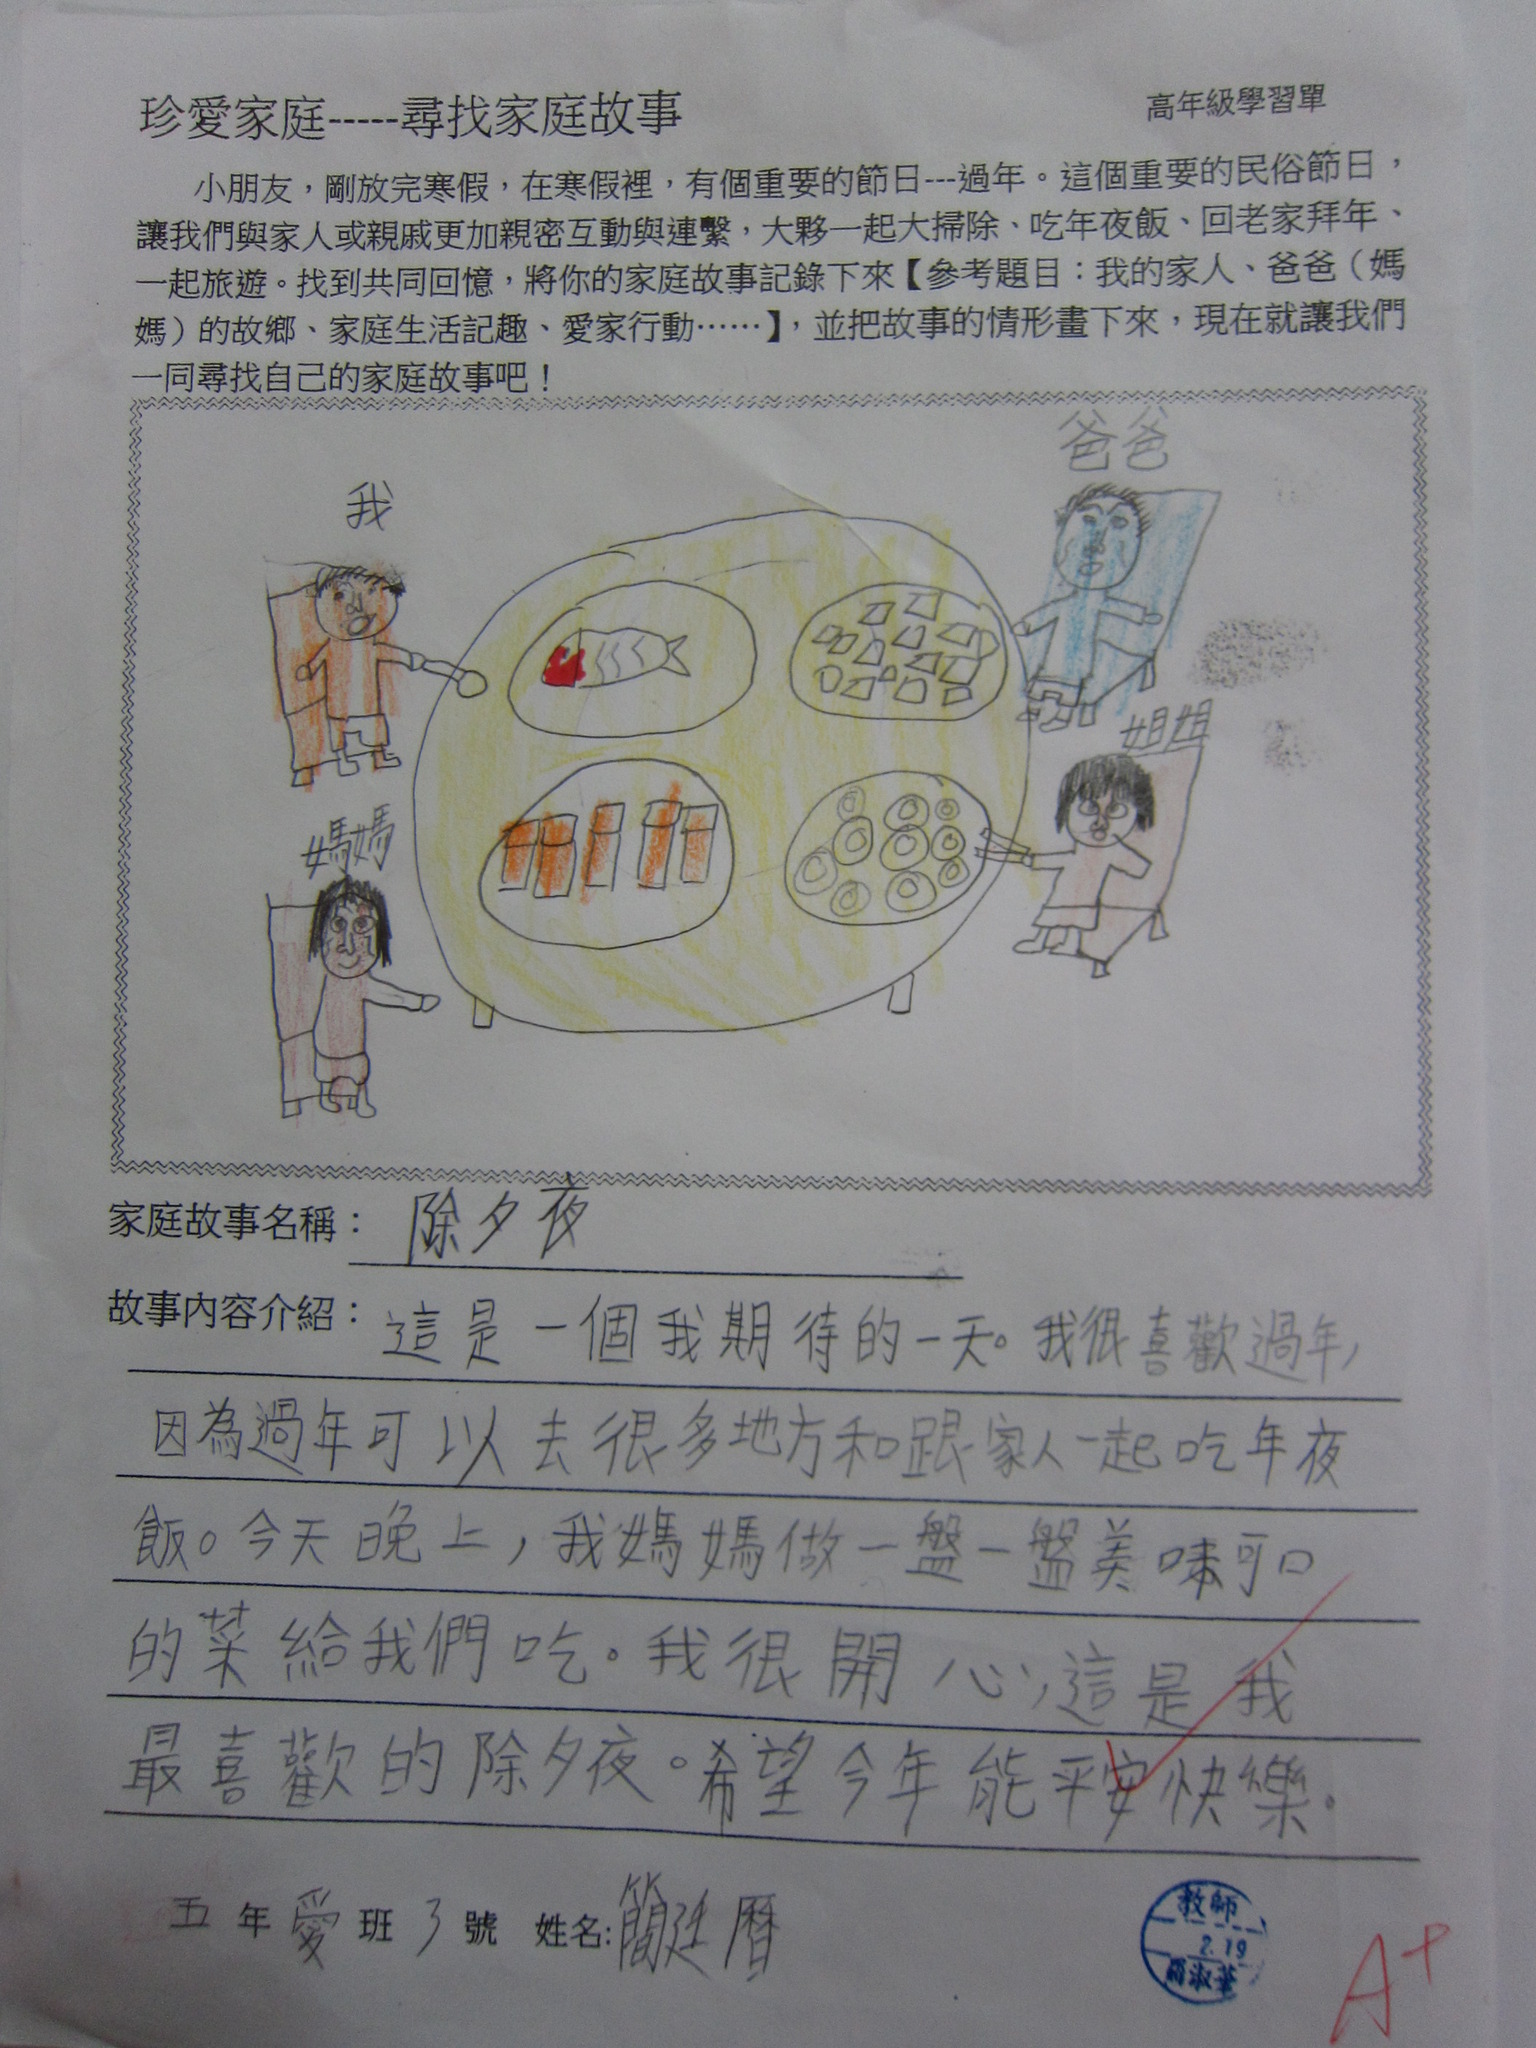 珍愛家庭-----尋找家庭故事
高年級學習單
小朋友，剛放完寒假，在寒假裡，有個重要的節日---過年。這個重要的民俗節日，
讓我們與家人或親戚更加親密互動與連繫，大夥一起大掃除、吃年夜飯、回老家拜年、
一起旅遊。找到共同回憶，將你的家庭故事記錄下來【參考題目：我的家人、爸爸（媽
媽）的故鄉、家庭生活記趣、愛家行動……】，並把故事的情形畫下來，現在就讓我們
一同尋找自己的家庭故事吧！
爸爸
我
姐姐
媽媽
家庭故事名稱：除夕夜
故事內容介紹：這是一個我期待的一天。我很喜歡過年，
因為過年可以去很多地方和跟家人一起吃年夜
飯。今天晚上，我媽媽做一盤一盤美味可口
的菜給我們吃。我很開心，這是我
最喜歡的除夕夜。希望今年能平安快樂。
五年愛班3號 姓名:簡廷曆
教師
2.19
羅淑華
A+